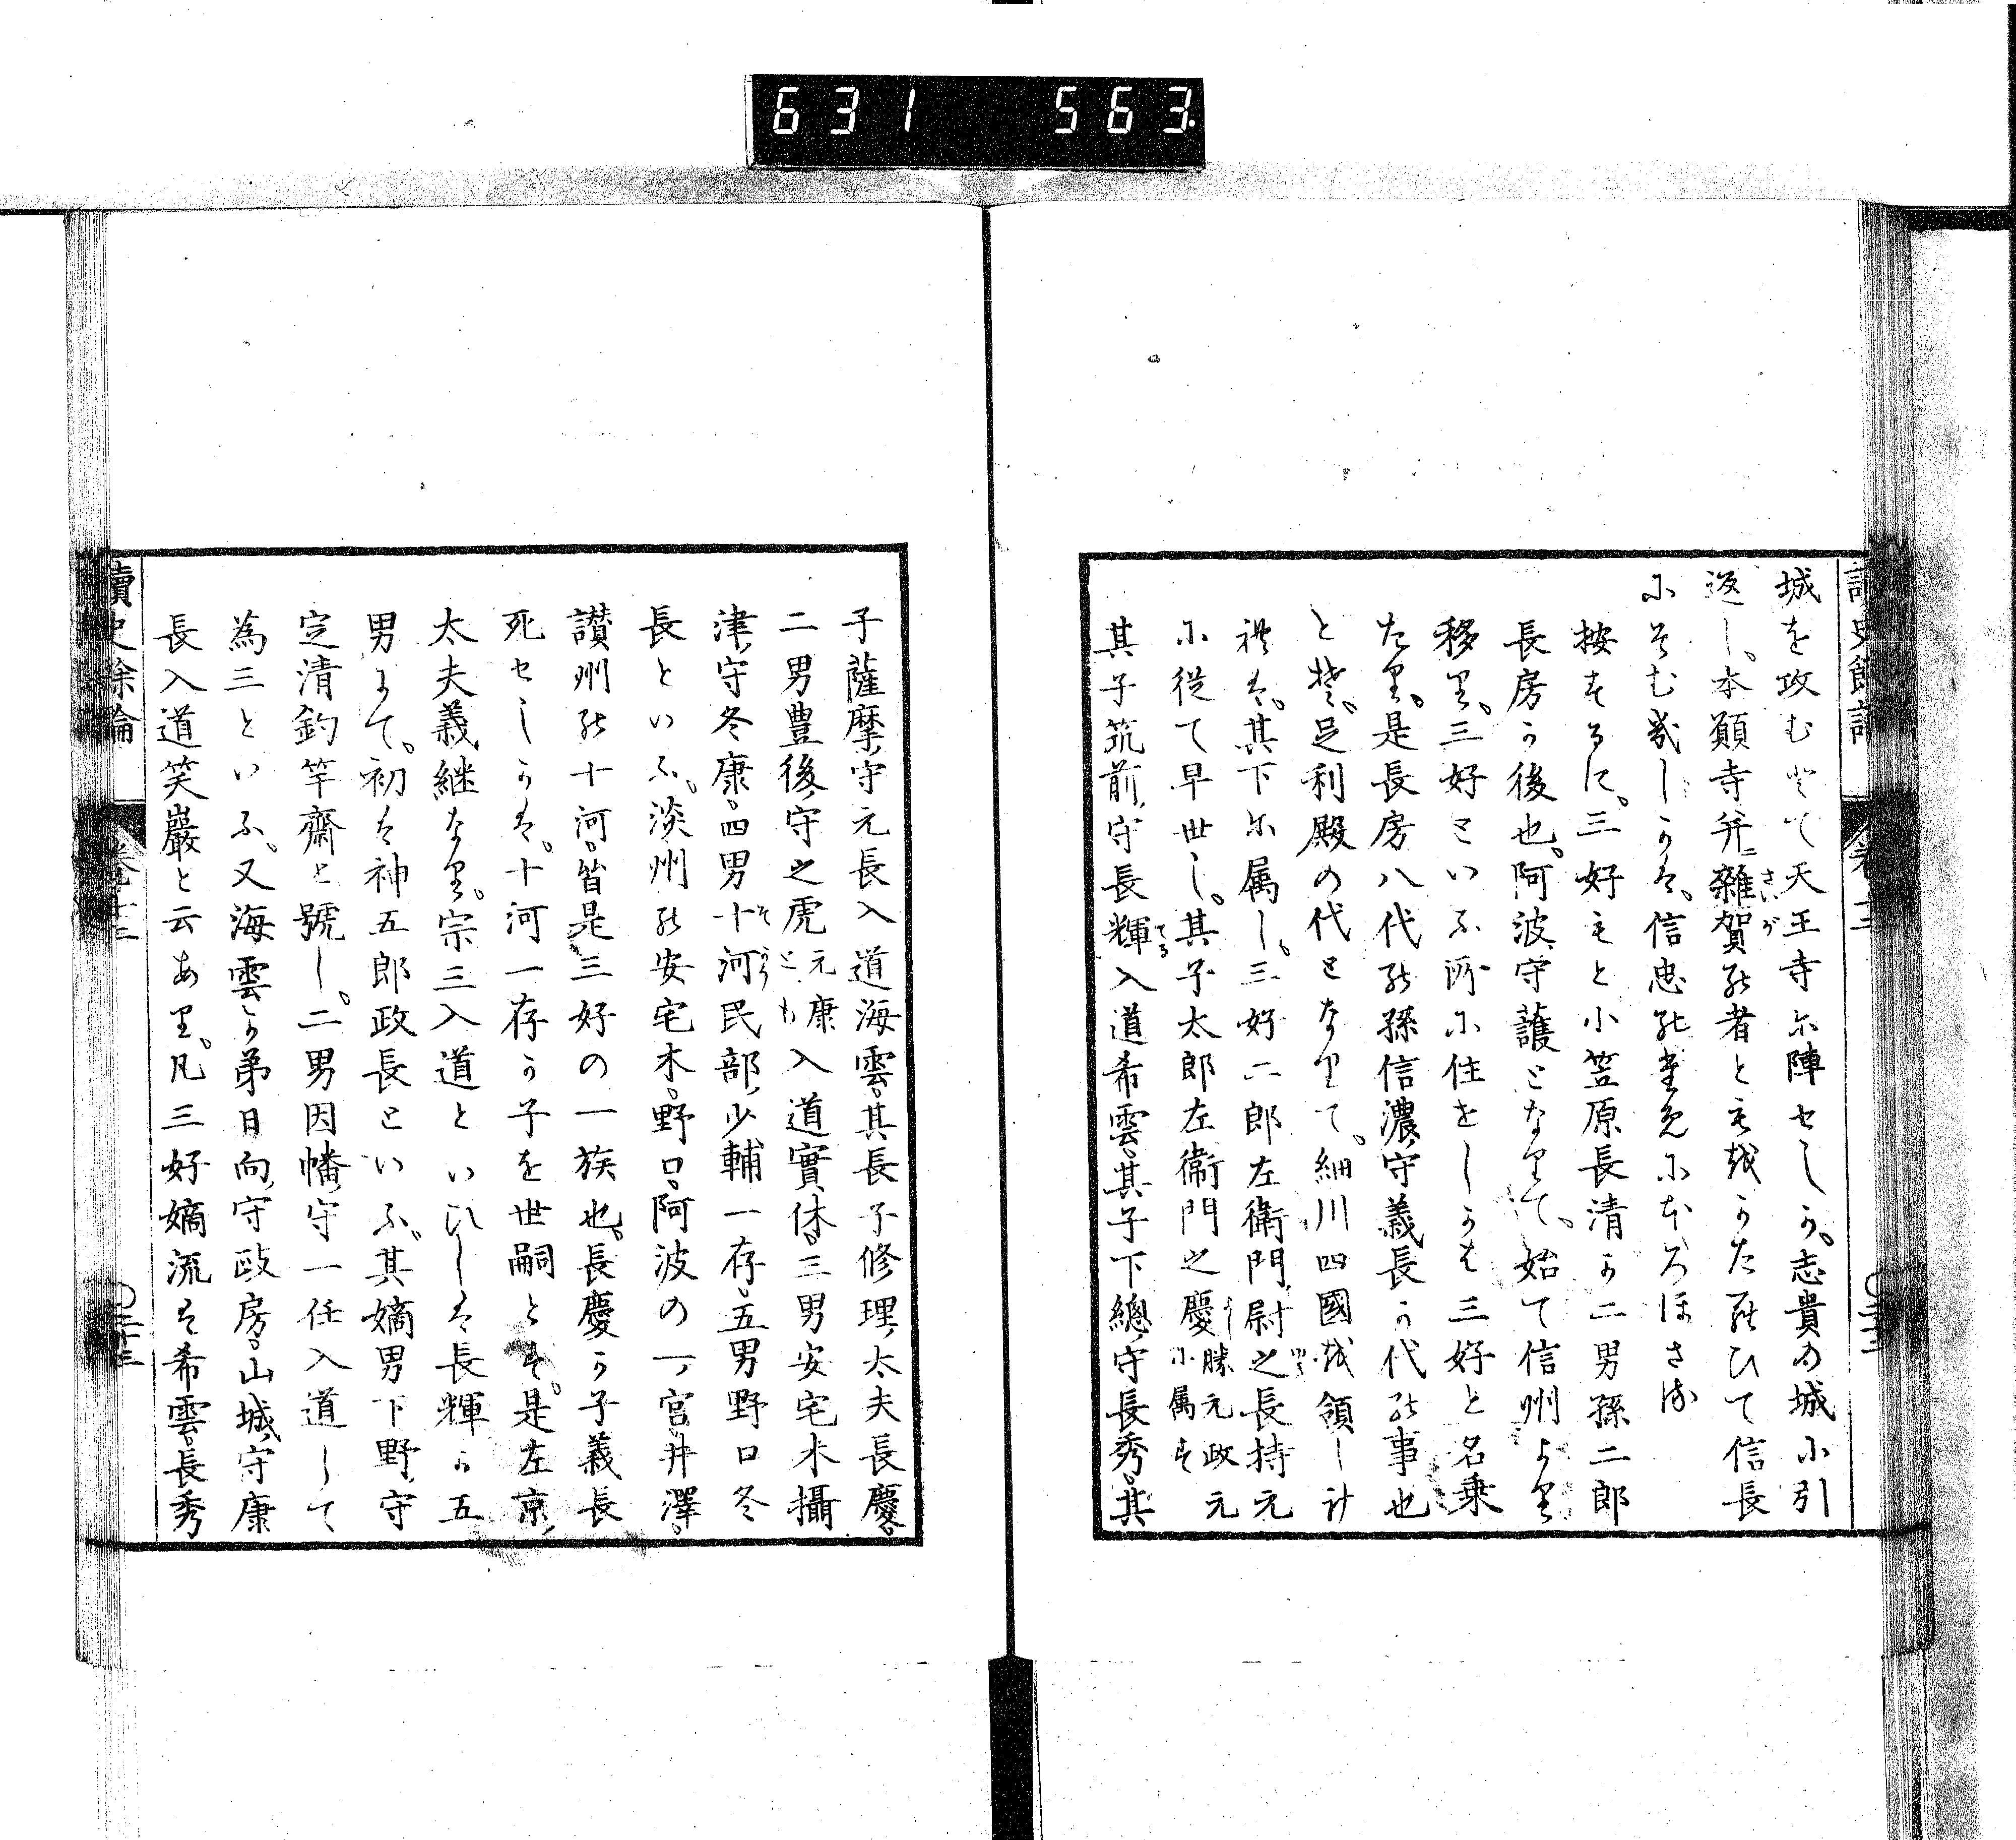 631 563
城を攻むとて天王寺に陣せしか。志貴の城に引
返し。本願寺并ニ雜賀の者ともをかたらひて信長
にそむきしかは。信忠の為にほろほさる
按するに。三好もと小笠原長清か二男孫二郎
長房か後也。阿波守護となりて。始て信州より
移り。三好といふ所に住せしかは三好と名乗
たり。是長房八代の孫信濃守義長か代の事也
とそ。足利殿の代となりて。細川四國を領しけ
れは。其下に属し。三好二郎左衛門尉之長持元
に従て早世し。其子太郎左衛門之慶勝元政元に属す
其子筑前守長輝入道希雲。其子下總守長秀。其
子薩摩守元長入道海雲。其長子修理太夫長慶。
二男豊後守之虎元康とも入道實休。三男安宅木攝
津守冬康。四男十河民部少輔一存。五男野口冬
長といふ。淡州の安宅木。野口。阿波の一宮。井澤。
讃州の十河。皆是三好の一族也。長慶か子義長
死せしかは。十河一存か子を世嗣とす。是左京
太夫義継なり。宗三入道といひしは長輝か五
男にて。初は神五郎政長といふ。其嫡男下野守
定清釣竿齋と號し。二男因幡守一任入道して
為三といふ。又海雲か弟日向守政房。山城守康
長入道笑巖と云あり。凡三好嫡流は希雲。長秀
讀史餘論